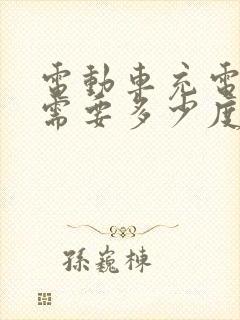 電動車充電
需要多少度
孫巍棟